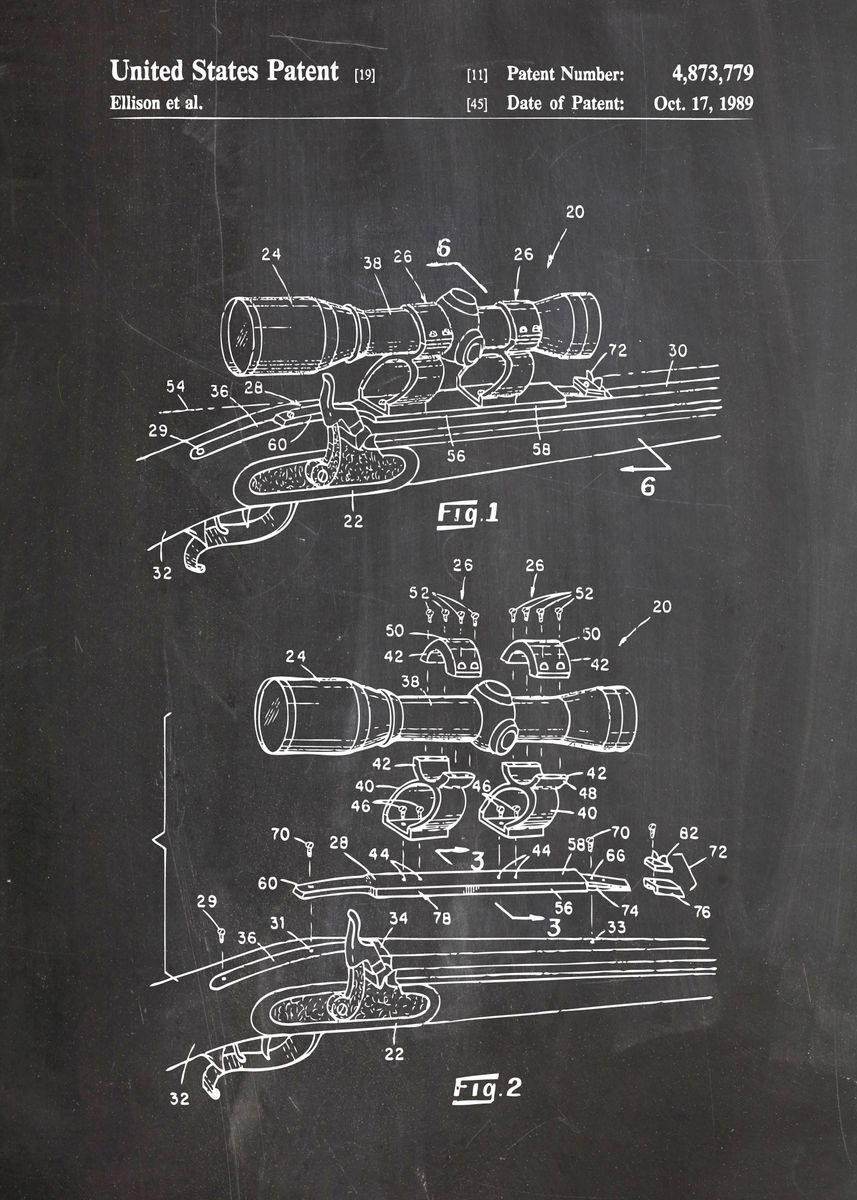 United States Patent [19] [11] Patent Number: 4,873,779
Ellison et al. [45] Date of Patent: Oct. 17, 1989
20
24 38 26 6 26
72 30
54 36 28
29 60 56 58
6
22
32
Fig.1
26 26
52 52
20
50 50
42 42
24 38
42 42
48
40 40
46 46
70 70
28 44 3 44 58 66 82 72
60
78 56 74 76
29 31 34 3 33
36
22
32
Fig.2